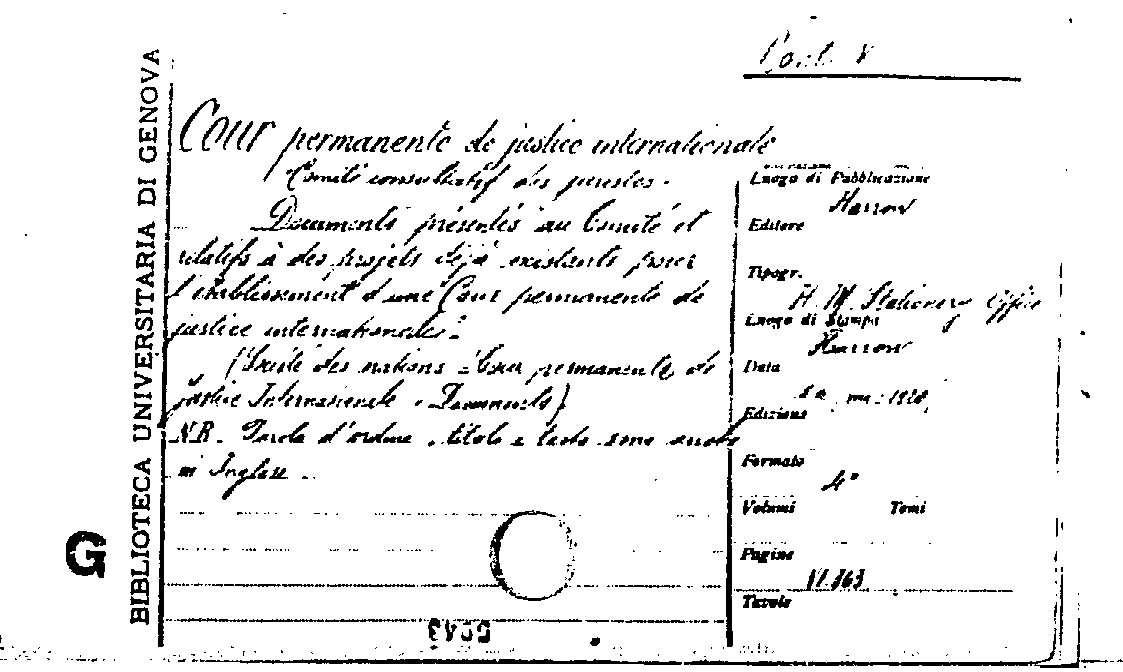 BIBLIOTECA UNIVERSITARIA DI GENOVA
G
Cour permanente de justice internationale
Comité consultatif des juristes.
Documents présentés au Comité et
relatifs à des projets déjà existants pour
l'établissement d'une Cour permanente de
justice internationale.
(Société des nations - Cour permanente de
justice Internationale. Documents)
N.B. Parola d'ordine, titolo e testo sono anche
in Inglese.
Luogo di Pubblicazione
Harrow
Editore
Tipogr.
H. M. Stationery Office
Luogo di Stampa
Harrow
Data
1920
Edizione
Formato
4°
Volumi Tomi
Pagine
VI.363
Tavole
5043